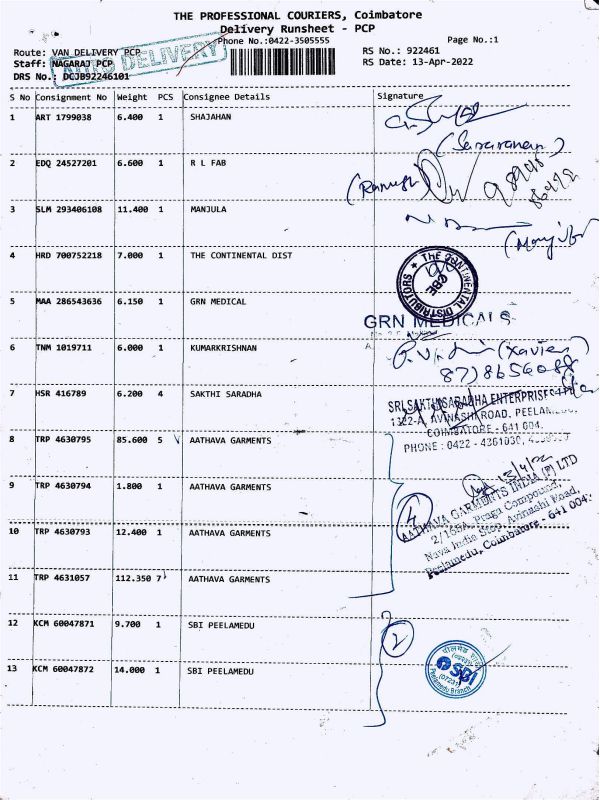 THE PROFESSIONAL COURIERS, Coimbatore
Delivery Runsheet - PCP
Phone No.:0422-3505555
Page No.:1
Route: VAN DELIVERY PCP
RS No.: 922461
Staff: NAGARAJ PCP
RS Date: 13-Apr-2022
DRS No.: DCJB92246101
AUTO DELIVERY
S No Consignment No Weight PCS Consignee Details Signature
1 ART 1799038 6.400 1 SHAJAHAN
(Saravanan)
2 EDQ 24527201 6.600 1 R L FAB
(Ramesh)
3 SLM 293406108 11.400 1 MANJULA
4 HRD 700752218 7.000 1 THE CONTINENTAL DIST
THE CONTINENTAL DISTRIBUTORS
CBE
5 MAA 286543636 6.150 1 GRN MEDICAL
GRN MEDICALS
6 TNM 1019711 6.000 1 KUMARKRISHNAN
(Xavier)
8778656088
7 HSR 416789 6.200 4 SAKTHI SARADHA
SRI SAKTHI SARADHA ENTERPRISES
1322-A, AVINASHI ROAD, PEELAMEDU,
COIMBATORE - 641 004.
PHONE : 0422 - 4361030,
8 TRP 4630795 85.600 5 AATHAVA GARMENTS
13/4/22
9 TRP 4630794 1.800 1 AATHAVA GARMENTS
4
AATHAVA GARMENTS INDIA (P) LTD
2/168A, Praga Compound,
Nava India Stop, Avinashi Road,
Peelamedu, Coimbatore - 641 004.
10 TRP 4630793 12.400 1 AATHAVA GARMENTS
11 TRP 4631057 112.350 7 AATHAVA GARMENTS
12 KCM 60047871 9.700 1 SBI PEELAMEDU
2
13 KCM 60047872 14.000 1 SBI PEELAMEDU
SBI
Peelamedu Branch